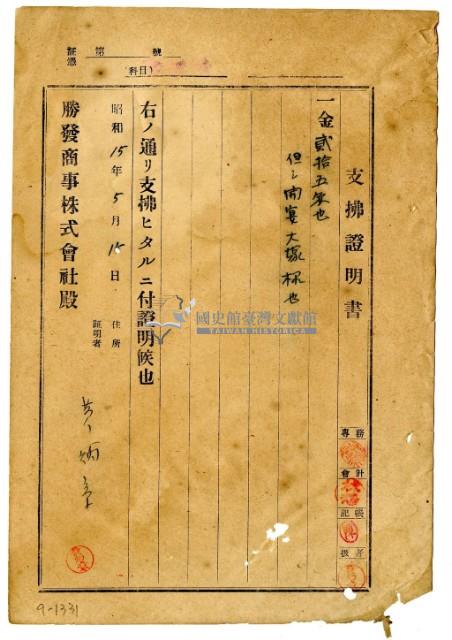 支拂證明書
一金貳拾五朱也
但シ
大塚
也
右ノ通リ支拂ヒタルニ付證明候也
昭和15年5月15日
住所
証明者
勝發商事株式會社殿
証憑
第 號
(科目)
專務
會計
記帳
扱者
國史館臺灣文獻館
TAIWAN HISTORICA
9-1331